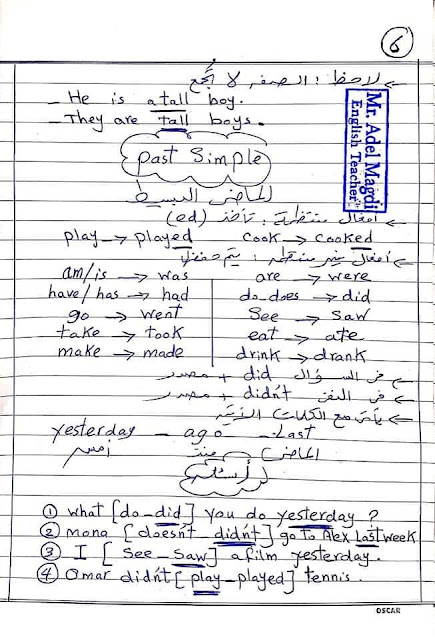 6
Mr. Adel Magdi
English Teacher
لاحظ : الصفه لا تجمع
- He is a tall boy.
- They are tall boys.
Past Simple
الماضى البسيط
افعال منتظمة : تأخذ (ed)
play → played cook → cooked
أفعال غير منتظمه : يتم حفظها
am/is → was are → were
have/has → had do-does → did
go → went See → Saw
take → took eat → ate
make → made drink → drank
فى السؤال did + مصدر
فى النفى didn't + مصدر
يأتى مع الكلمات الآتية
yesterday - ago - Last
أمس منذ الماضى
أسئلة
① what [do - did] you do yesterday ?
② mona [doesn't - didn't] go to Alex Last week
③ I [See - Saw] a film yesterday.
④ Omar didn't [play - played] tennis.
OSCAR